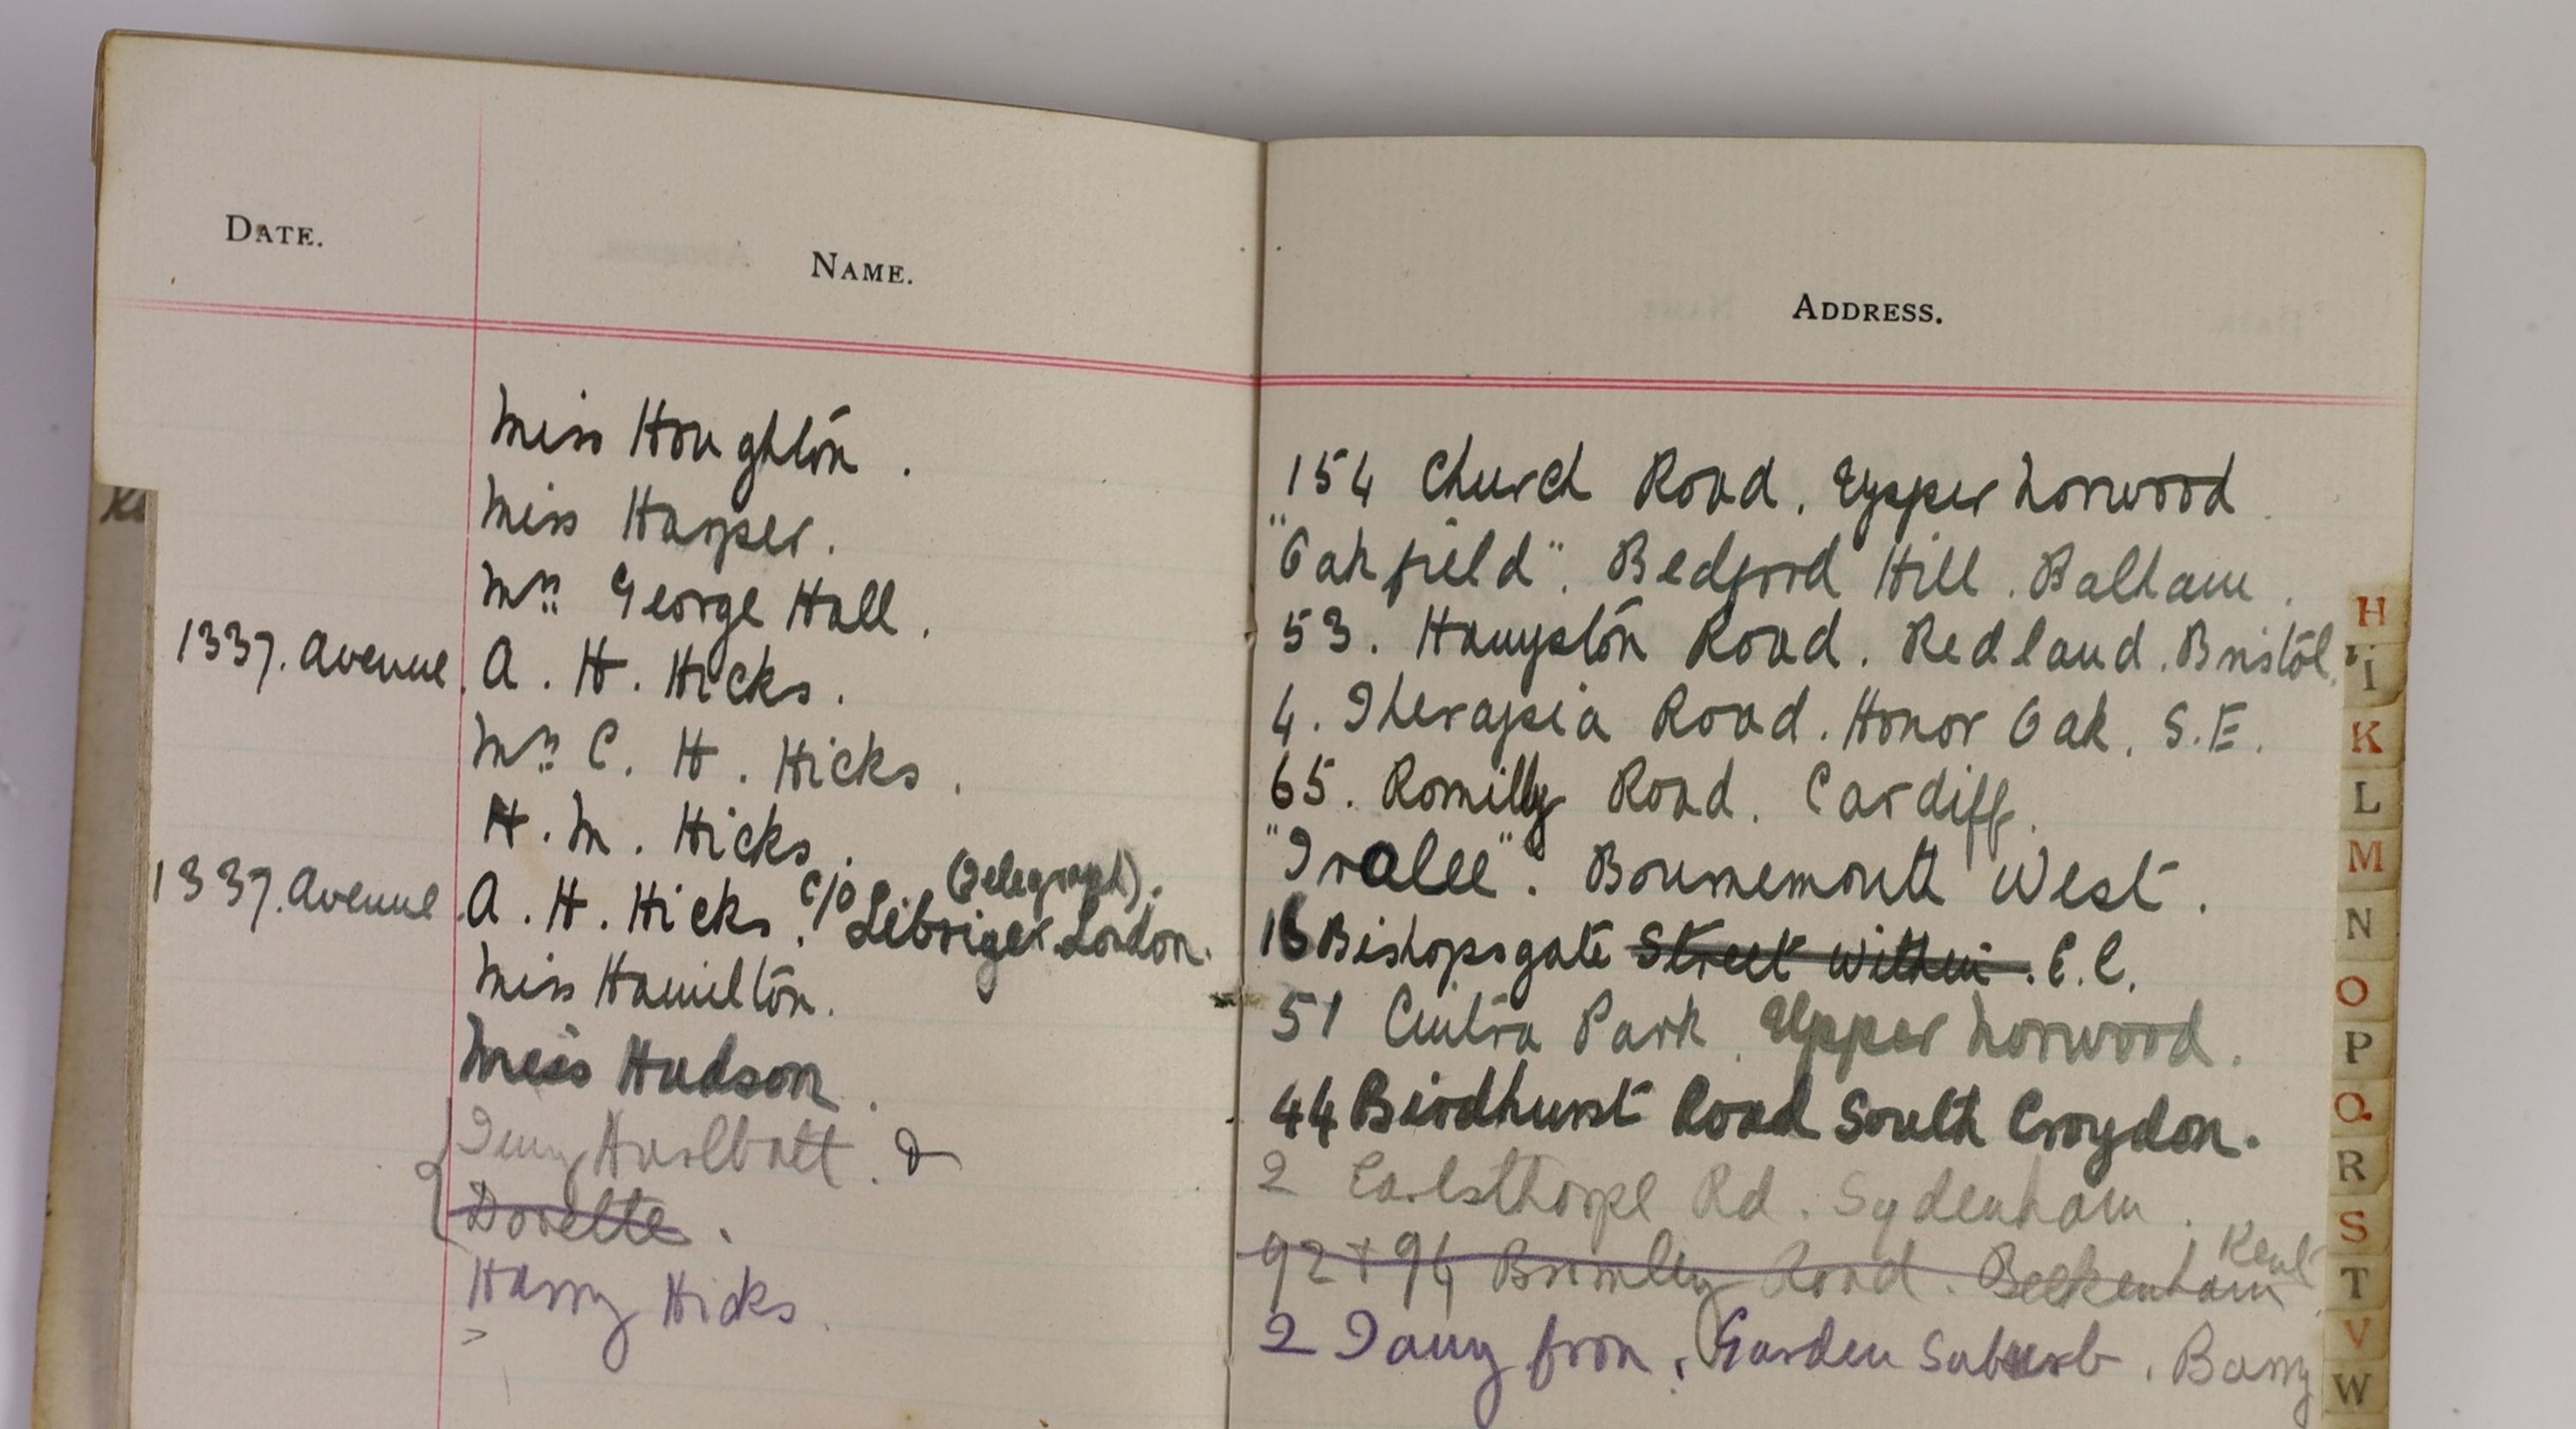 DATE.
NAME.
ADDRESS.
Miss Houghton. 154 Church Road. Upper Norwood.
Miss Harper. "Oakfield". Bedford Hill. Balham.
Mrs George Hall. 53. Hampton Road. Redland. Bristol.
1337. Avenue. A. H. Hicks. 4. Therapia Road. Honor Oak. S.E.
Mrs C. H. Hicks. 65. Romilly Road. Cardiff.
H. M. Hicks. "Tralee". Bournemouth West.
(Telegraph).
1337. Avenue. A. H. Hicks. c/o London. Bishopsgate Street Within. E.C.
Miss Hamilton. 51 Cintra Park. Upper Norwood.
Miss Hudson. 44 Birdhurst Road South Croydon.
Hurlbatt. & 2 Earlsthorpe Rd. Sydenham.
Dorette. 92 + 94 Bromley Road. Beckenham Kent
Harry Hicks. 2 Tany fron, Garden Suburb. Barry
H
I
K
L
M
N
O
P
Q
R
S
T
V
W